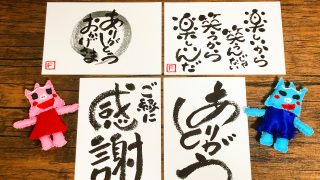 ありがとう
おかげさま
楽しいから
笑うんじゃない
笑うから
楽しいんだ
ご縁に
感謝
ありがとう